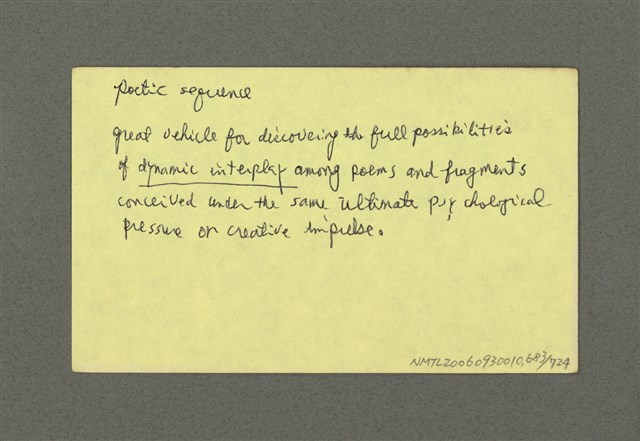 poetic sequence
great vehicle for discovering the full possibilities
of dynamic interplay among poems and fragments
conceived under the same ultimate psychological
pressure or creative impulse.
NMTL20060930010,683/724